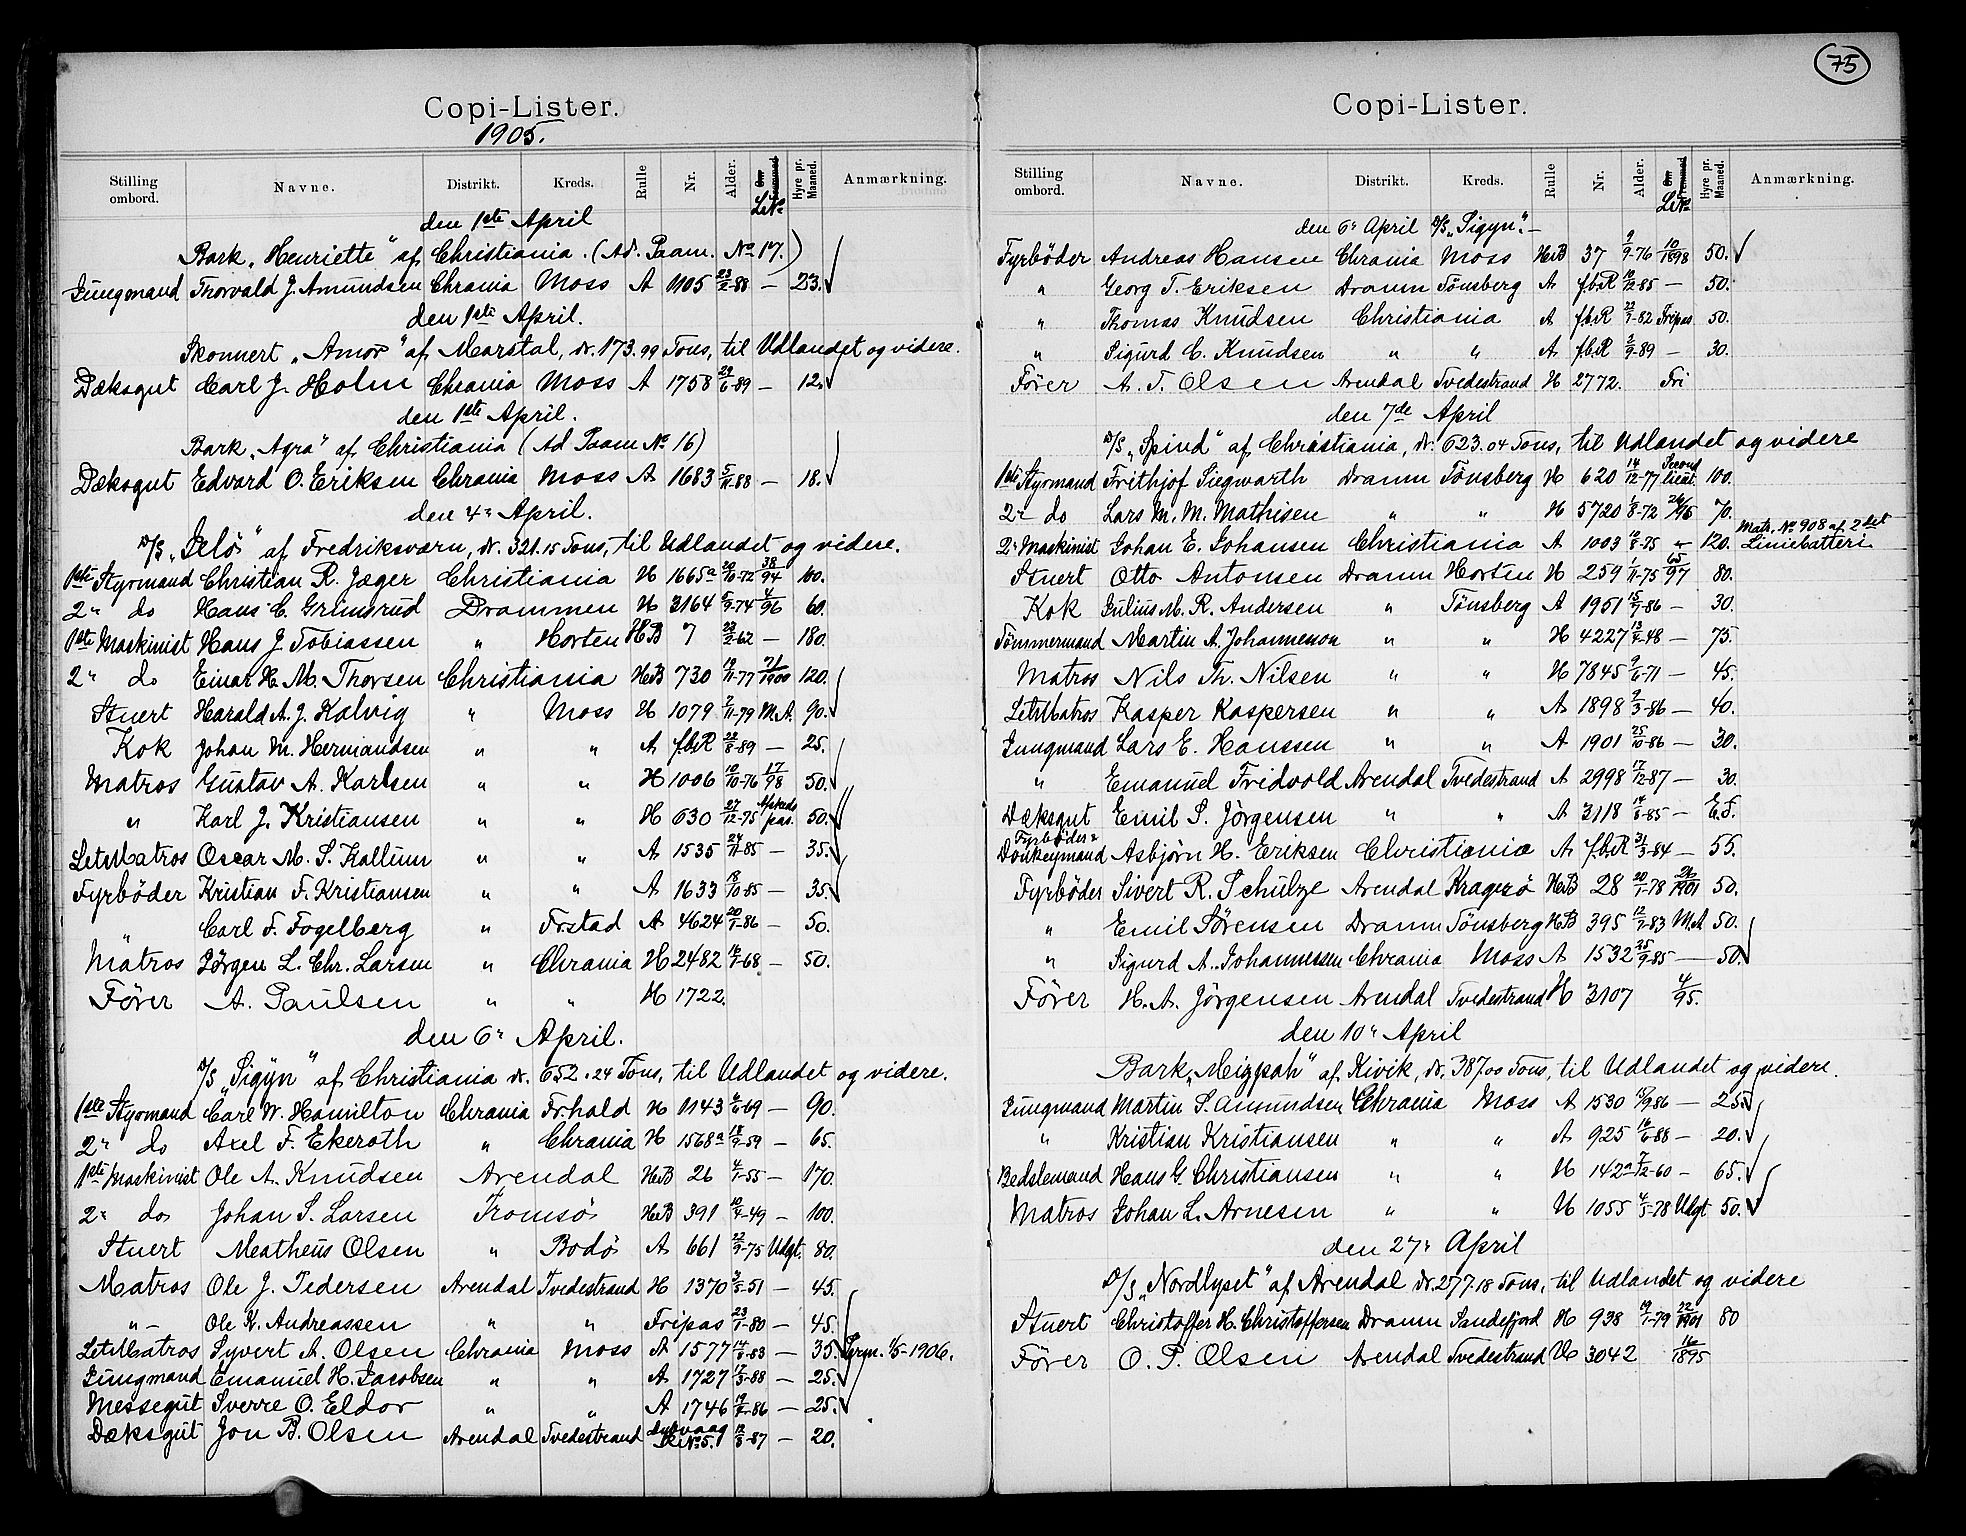 Copi-Lister.
1905.
Stilling ombord. Navne. Distrikt. Kreds. Rulle Nr. Alder. Hyre pr. Maaned. Anmærkning.
LeNo
den 1ste April
Bark „Henriette" af Christiania. (Ad. Paam. No 17.)
Jungmand Thorvald J. Amundsen Chrania Moss A 1105 23/2-88 — 23.
den 1ste April.
Skonnert „Amor" af Marstal, dr. 173.99 Tons, til Udlandet og videre.
Dæksgut Carl J. Holm Chrania Moss A 1758 29/6-89 — 12.
den 1ste April.
Bark „Agra" af Christiania (Ad Paam No 16)
Dæksgut Edvard O. Eriksen Chrania Moss A 1683 5/11-88 — 18.
den 4. April.
D/S „Selö" af Fredriksværn, dr. 321.15 Tons, til Udlandet og videre.
1ste Styrmand Christian R. Jæger Christiania H 1665a 20/10-72 38/94 100.
2" do Hans C. Grimsrud Drammen H 3164 5/9-74 4/96 60.
1ste Maskinist Hans J. Tobiassen " Horten HB 7 23/2-62 — 180.
2" do Einar H. M. Thorsen Christiania HB 730 19/11-77 71/1900 120.
Stuert Harald A. J. Kalvig " Moss H 1079 2/11-79 M.A. 90.
Kok Johan M. Hermandsen " " A f.b.R 22/8-89 — 25.
Matros Gustav A. Karlsen " " H 1006 10/10-76 17/98 50.
" Karl J. Kristiansen " " H 630 27/12-75 Afskeds pas. 50.
LetMatros Oscar M. S. Kallum " " A 1535 24/11-85 — 35.
Fyrböder Kristian F. Kristiansen " " A 1633 18/10-85 — 35.
" Carl F. Fogelberg " Frstad A 4624 20/1-86 — 50.
Matros Jörgen L. Chr. Larsen " Chrania H 2482 16/1-68 — 50.
Förer A. Paulsen " " H 1722.
den 6. April.
D/S „Sigyn" af Christiania dr. 652.24 Tons, til Udlandet og videre.
1ste Styrmand Carl W. Hamilton Chrania Fr.hald H 1143 6/6-69 — 90.
2" do Axel F. Ekeroth " Chrania H 1568a 18/9-59 — 65.
1ste Maskinist Ole A. Knudsen Arendal HB 26 4/1-55 — 170.
2" do Johan S. Larsen Tromsö HB 391 10/4-49 — 100.
Stuert Matheus Olsen " Bodö A 661 22/9-75 Udgt. 80.
Matros Ole J. Pedersen Arendal Tvedestrand H 1370 3/5-51 — 45.
" — Ole K. Andreassen " " Fripas 23/1-80 — 45.
LetMatros Syvert A. Olsen Chrania Moss A 1577 14/8-83 — 35. Perm. 1/5-1906.
Jungmand Emanuel H. Jacobsen " " A 1727 17/3-88 — 25.
Messegut Sverre O. Eldor " " A 1746 19/8-86 — 25.
Dæksgut Jon B. Olsen Arendal Tvedestrand Dybvaag LeNo 5. 12/8-87 — 20.
75
Copi-Lister.
Stilling ombord. Navne. Distrikt. Kreds. Rulle Nr. Alder. Hyre pr. Maaned. Anmærkning.
LeNo
den 6. April D/S „Sigyn". —
Fyrböder Andreas Hansen Chrania Moss HB 37 9/9-76 10/1898 50.
" Georg T. Eriksen Dramn Tönsberg A f.b.R 10/12-85 — 50.
" Thomas Knudsen Christiania A f.b.R 22/1-82 Fripas 50.
" Sigurd C. Knudsen " " A f.b.R 2/9-89 — 30.
Förer A. T. Olsen Arendal Tvedestrand H 2772. Fri
den 7de April
D/S „Spind" af Christiania, dr. 623.04 Tons, til Udlandet og videre
1ste Styrmand Frithjof Siegwarth Dramn Tönsberg H 620 14/12-77 Second lieut. 100.
2" do Lars M. M. Mathisen " " H 5720 1/8-72 26/96 70.
2" Maskinist Johan E. Johansen Christiania A 1003 10/8-75 " 120. Matr. No 908 af 2det Liniebatteri
Stuert Otto Antonsen Dramn Horten H 259 1/11-75 65/97 80.
Kok Julius M. R. Andersen " Tönsberg A 1951 15/7-86 — 30.
Tömmermand Martin A. Johannesson " " H 4227 13/4-48 — 75.
Matros Nils Th. Nilsen " " H 7845 9/6-71 — 45.
LetMatros Kasper Kaspersen " " A 1898 2/3-86 — 40.
Jungmand Lars E. Hanssen " " A 1901 25/10-86 — 30.
" Emanuel Fridvold Arendal Tvedestrand A 2998 17/12-87 — 30.
Dæksgut Emil S. Jörgensen " " A 3118 14/8-85 — E.F.
Fyrböder & Donkeymand Asbjörn H. Eriksen Christiania A f.b.R 31/3-84 — 55.
Fyrböder Sivert R. Schulze Arendal Kragerö HB 28 20/1-78 26/1901 50.
" Emil Sörensen Dramn Tönsberg HB 395 12/7-83 M.A 50.
" Sigurd A. Johannessen Chrania Moss A 1532 25/9-85 — 50.
Förer H. A. Jörgensen Arendal Tvedestrand H 3107 4/95.
den 10. April
Bark „Mizpah" af Kivik, dr. 387.00 Tons, til Udlandet og videre.
Jungmand Martin S. Amundsen Chrania Moss A 1530 19/9-86 — 25.
" Kristian Kristiansen " " A 925 16/6-88 — 20.
Bedstemand Hans G. Christiansen " " H 142a 7/12-60 — 65.
Matros Johan L. Arnesen " " H 1055 4/5-78 Udgt 50.
den 27. April
D/S „Nordlyset" af Arendal dr. 277.18 Tons, til Udlandet og videre
Stuert Christoffer H. Christoffersen Dramn Sandefjord H 938 19/1-79 22/1901 80
Förer O. P. Olsen Arendal Tvedestrand H 3042 16/1895